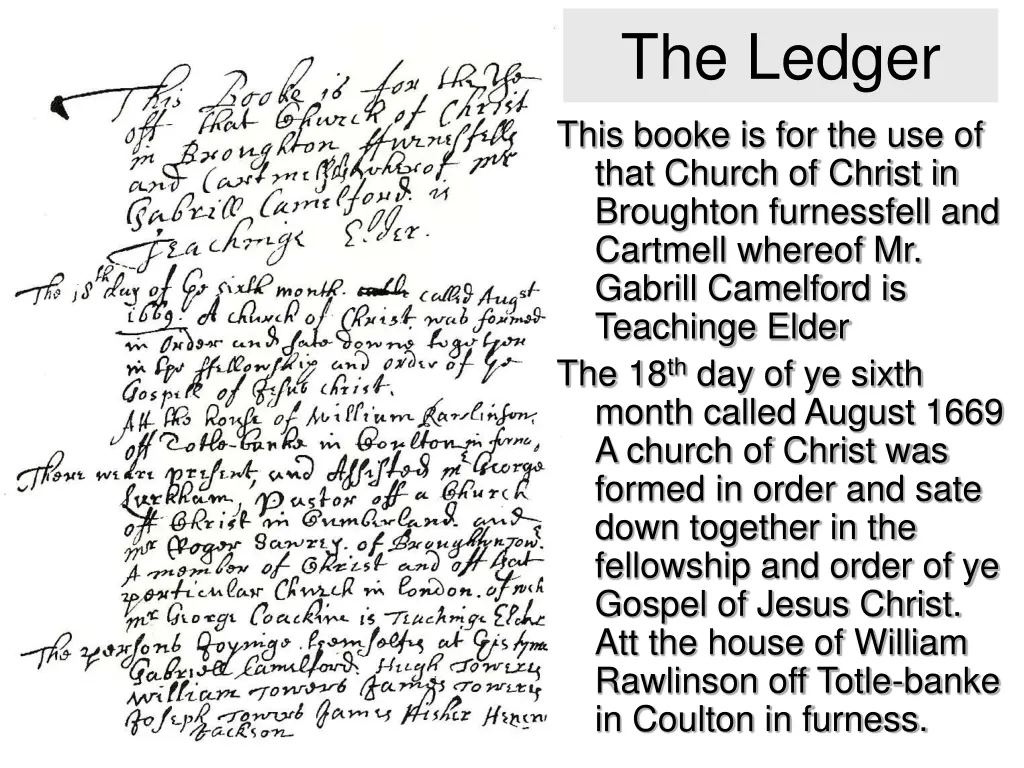 This Booke is for the Use
off that Church of Christ
in Broughton ffurnesfells
and Cartmell wherof mr
Gabrill Camelford is
Teachinge Elder.
The 18th day of ye sixth month called Augst
1669. A church of Christ was formed
in order and sate downe together
in the ffellowship and order of ye
Gospell of Jesus Christ.
Att the house of William Rawlinson.
off Totle-banke in Coulton in furne,
There weare present, and Assisted mr George
Larkham, Pastor off a Church
off Christ in Cumberland. and
mr Roger Sawrey. of Broughton Towr.
A member of Christ and off that
perticular Church in london. of wch
mr George Coackine is Teachinge Elder
The persons Joyninge themselfes at this tyme
Gabriell Camelford. Hugh Towers
William Towers James Towers
Joseph Towers James Fisher Henery
Jackson
The Ledger
This booke is for the use of
that Church of Christ in
Broughton furnessfell and
Cartmell whereof Mr.
Gabrill Camelford is
Teachinge Elder
The 18th day of ye sixth
month called August 1669
A church of Christ was
formed in order and sate
down together in the
fellowship and order of ye
Gospel of Jesus Christ.
Att the house of William
Rawlinson off Totle-banke
in Coulton in furness.